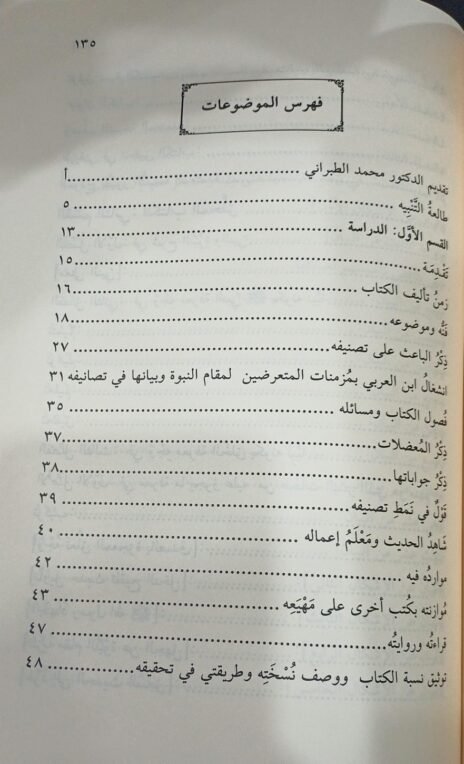 ١٣٥
فهرس الموضوعات
تقديم الدكتور محمد الطبراني ........................................ أ
طالعةُ التَّنْبِيه ........................................ ٥
القسم الأوَّل: الدراسة ........................................ ١٣
تَقْدِمَة ........................................ ١٥
زَمنُ تأليف الكتاب ........................................ ١٦
فَنُّه وموضوعه ........................................ ١٨
ذِكْرُ الباعث على تصنيفه ........................................ ٢٧
انشغالُ ابن العربي بمُزمنات المتعرضين لمقام النبوة وبيانها في تصانيفه ٣١
فُصول الكتاب ومسائله ........................................ ٣٥
ذِكْرُ المُعضلات ........................................ ٣٧
ذِكْرُ جواباتها ........................................ ٣٨
قَوْلٌ في نَمَطِ تصنيفه ........................................ ٣٩
شَاهِدُ الحديث ومَعْلَمُ إعماله ........................................ ٤٠
مواردُه فيه ........................................ ٤٢
مُوازنته بكُتب أخرى على مَهْيَعِه ........................................ ٤٣
قراءتُه وروايتُه ........................................ ٤٧
توثيق نسبة الكتاب ووصف نُسْخَتِه وطريقتي في تحقيقه ........................................ ٤٨